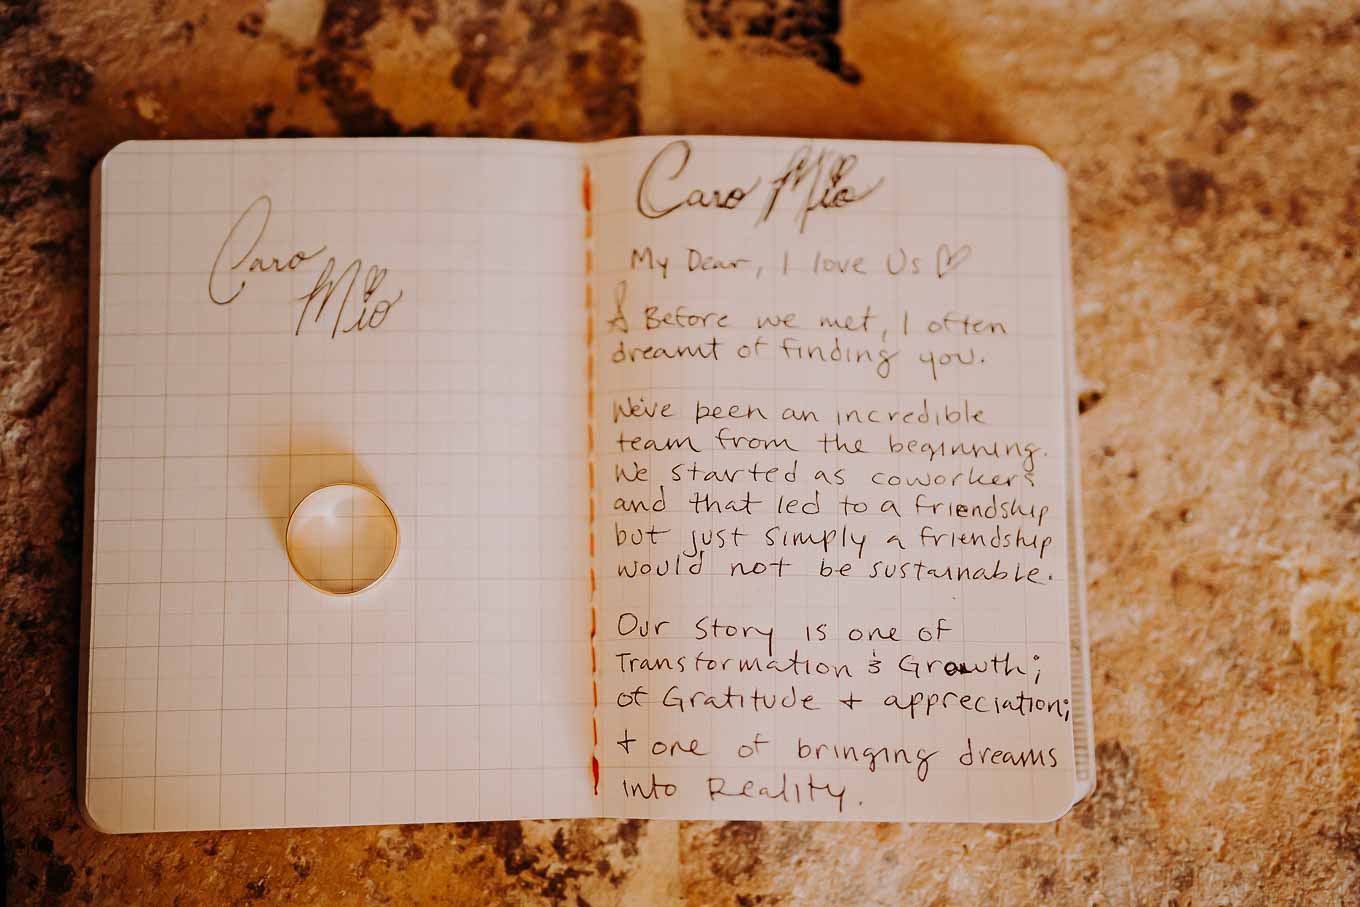 Caro
Mio
Caro Mio
My Dear, I love Us ♡
Before we met, I often
dreamt of finding you.
We've been an incredible
team from the beginning.
We started as coworkers
and that led to a friendship
but just simply a friendship
would not be sustainable.
Our Story is one of
Transformation & Growth;
of Gratitude + appreciation;
+ one of bringing dreams
into Reality.